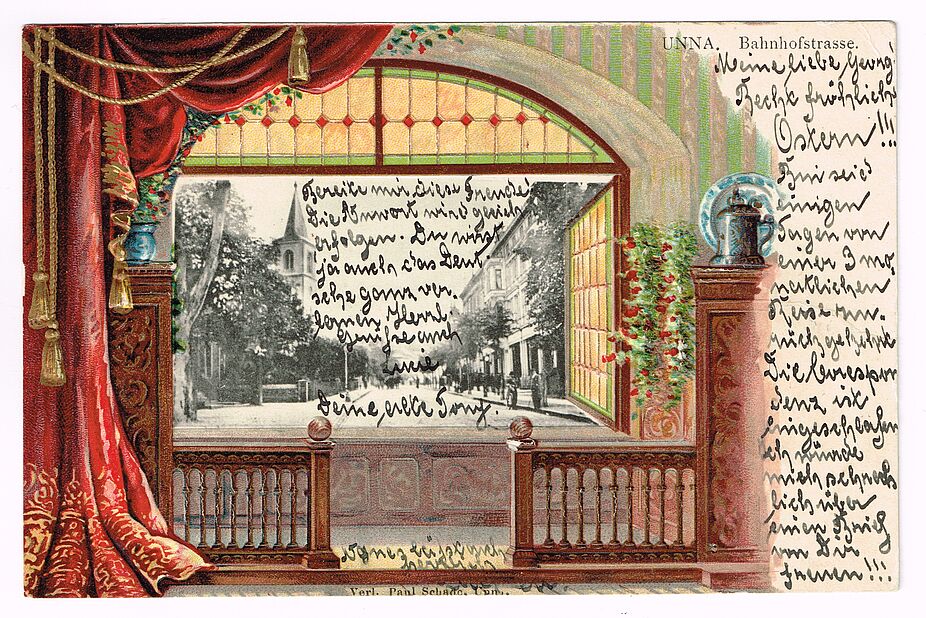 UNNA. Bahnhofstrasse.
Meine liebe Georg
Recht fröhliche
Ostern!!!
Bin seid
einigen
Tagen von
einer 3 mo,
natlichen
Reise zu,
rückgekehrt
Die Corespon
denz ist
eingeschlafen
ich würde
mich schreck
lich über
einen Brief
von Dir
freuen!!!
Bereite mir diese Freude!
Die Antwort wird gleich
erfolgen. Du wirst
ja auch das Deut
sche ganz ver,
lernen. Herzl.
Grüsse auch
Lucie
Deine alte Tony.
Agnes lässt Dich
herzlich
Verl. Paul Schade, Unna.